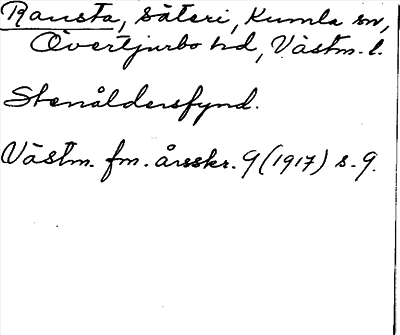 Ransta, säteri, Kumla sn,
Övertjurbo hd, Västm. l.
Stenåldersfynd.
Västm. fm. årsskr. 9 (1917) s. 9.